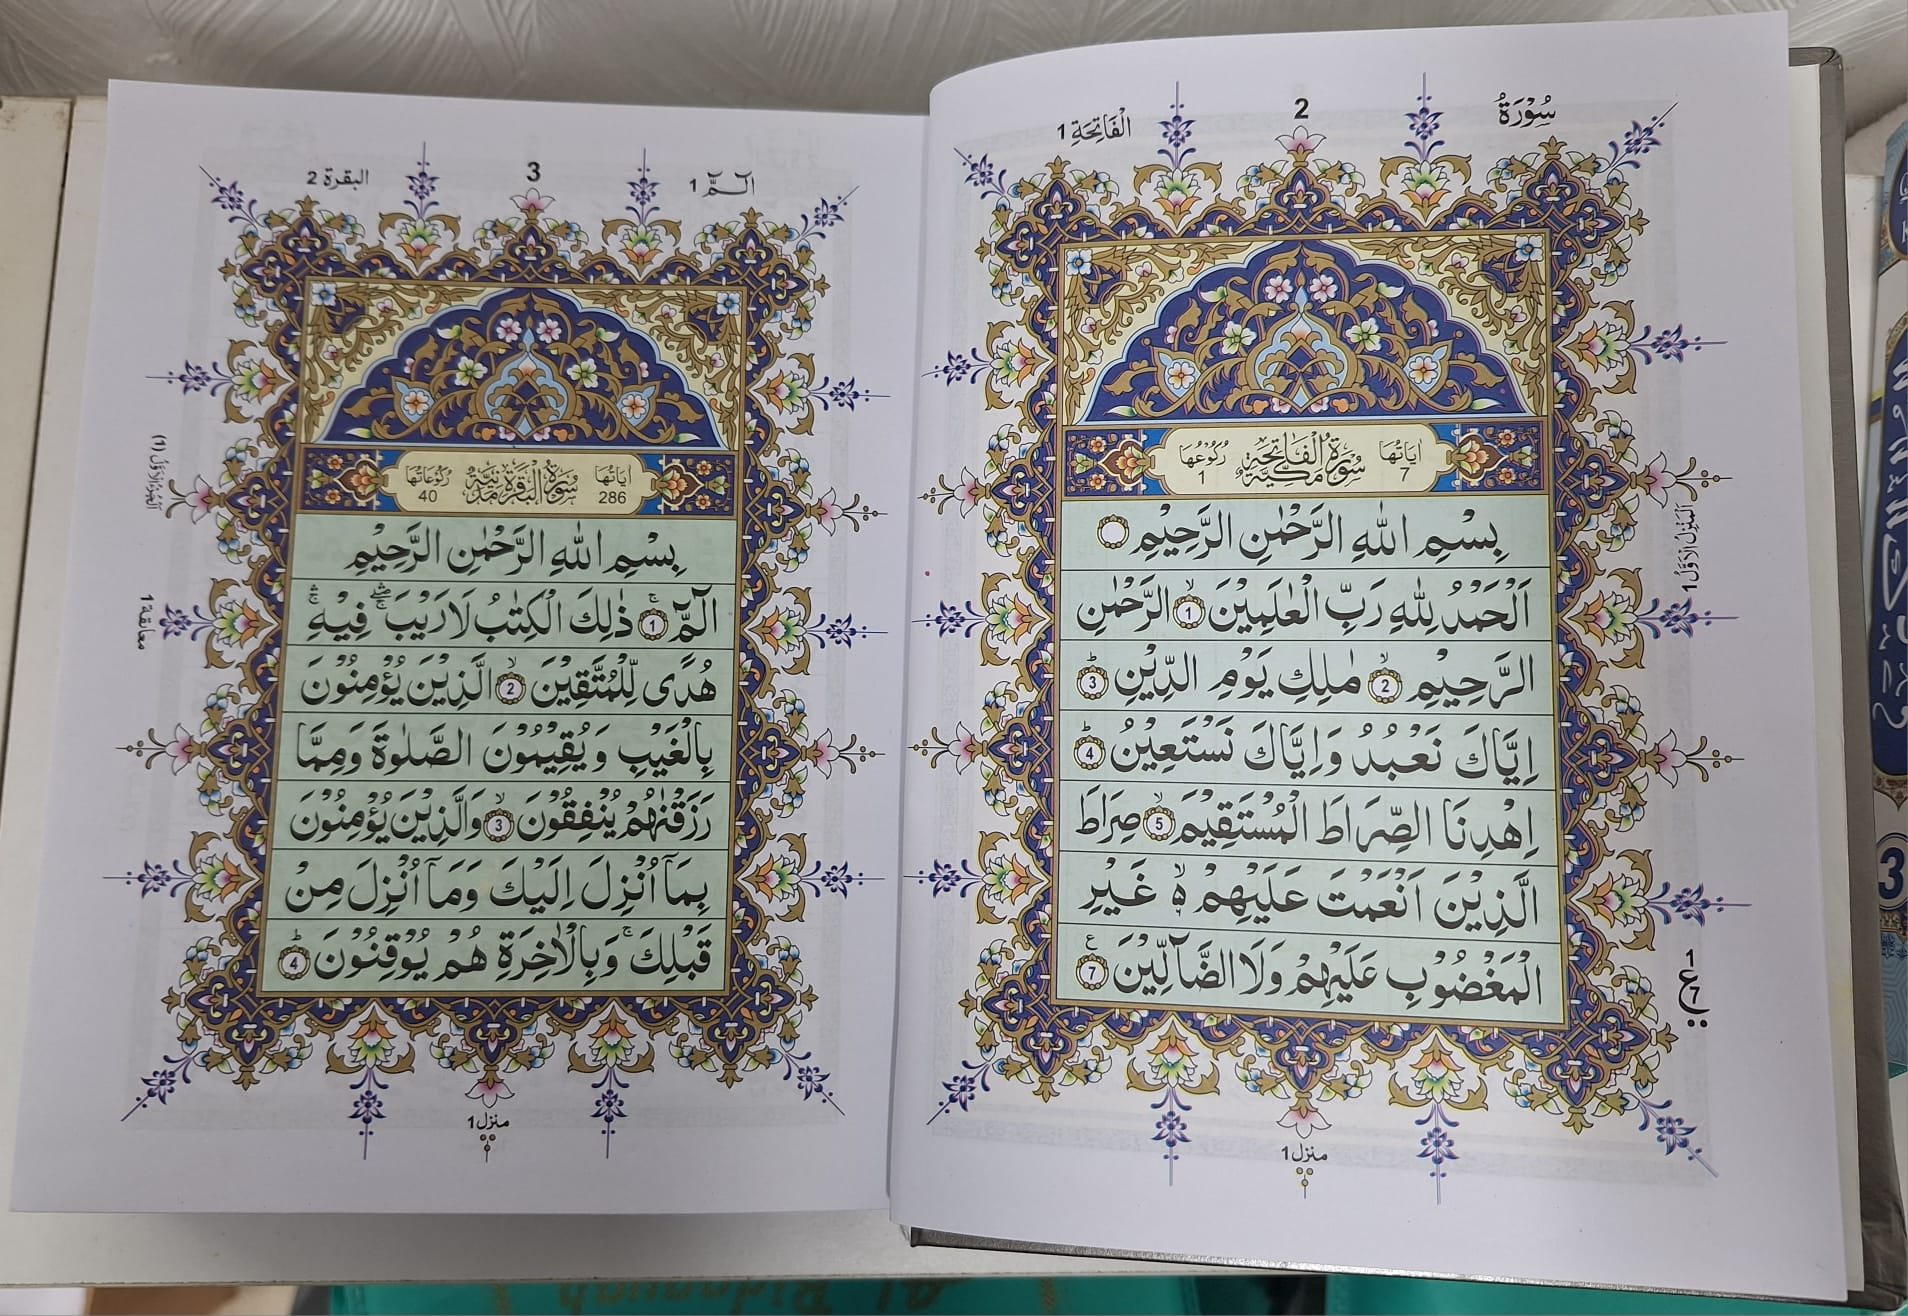 سُوْرَةُ
2
الْفَاتِحَة 1
اٰيَاتُهَا 7
سُوْرَةُ الْفَاتِحَةِ مَكِّيَّةٌ
رُكُوْعُهَا 1
بِسْمِ اللّٰهِ الرَّحْمٰنِ الرَّحِيْمِ
اَلْحَمْدُ لِلّٰهِ رَبِّ الْعٰلَمِيْنَ ۙ 1 الرَّحْمٰنِ
الرَّحِيْمِ ۙ 2 مٰلِكِ يَوْمِ الدِّيْنِ ؕ 3
اِيَّاكَ نَعْبُدُ وَاِيَّاكَ نَسْتَعِيْنُ ؕ 4
اِهْدِنَا الصِّرَاطَ الْمُسْتَقِيْمَ ۙ 5 صِرَاطَ
الَّذِيْنَ اَنْعَمْتَ عَلَيْهِمْ ۙ۬ غَيْرِ
الْمَغْضُوْبِ عَلَيْهِمْ وَلَا الضَّآلِّيْنَ ع 7
اَلْمَنْزِلُ الْاَوَّلُ 1
1 ع 7
منزل 1
الٓمّٓ 1
3
البقرة 2
اٰيَاتُهَا 286
سُوْرَةُ الْبَقَرَةِ مَدَنِيَّةٌ
رُكُوْعَاتُهَا 40
بِسْمِ اللّٰهِ الرَّحْمٰنِ الرَّحِيْمِ
الٓمّٓ ۚ 1 ذٰلِكَ الْكِتٰبُ لَا رَيْبَ ۛۖۚ فِيْهِ ۛۚ
هُدًى لِّلْمُتَّقِيْنَ ۙ 2 الَّذِيْنَ يُؤْمِنُوْنَ
بِالْغَيْبِ وَيُقِيْمُوْنَ الصَّلٰوةَ وَمِمَّا
رَزَقْنٰهُمْ يُنْفِقُوْنَ ۙ 3 وَالَّذِيْنَ يُؤْمِنُوْنَ
بِمَآ اُنْزِلَ اِلَيْكَ وَمَآ اُنْزِلَ مِنْ
قَبْلِكَ ۚ وَبِالْاٰخِرَةِ هُمْ يُوْقِنُوْنَ ؕ 4
اَلْجُزْءُ الْاَوَّلُ (1)
معانقة 1
منزل 1
3